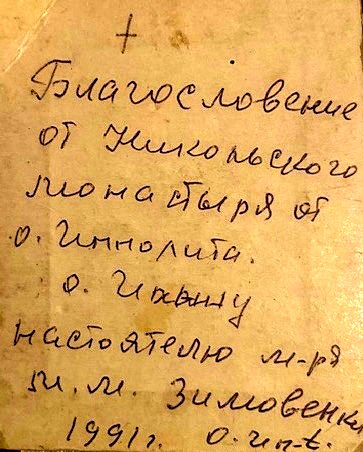 Благословение
от Никольского
монастыря от
о. Ипполита.
о.
настоятелю м-ря
м. м. Зимовенки
1991 г. о. Ип-т.